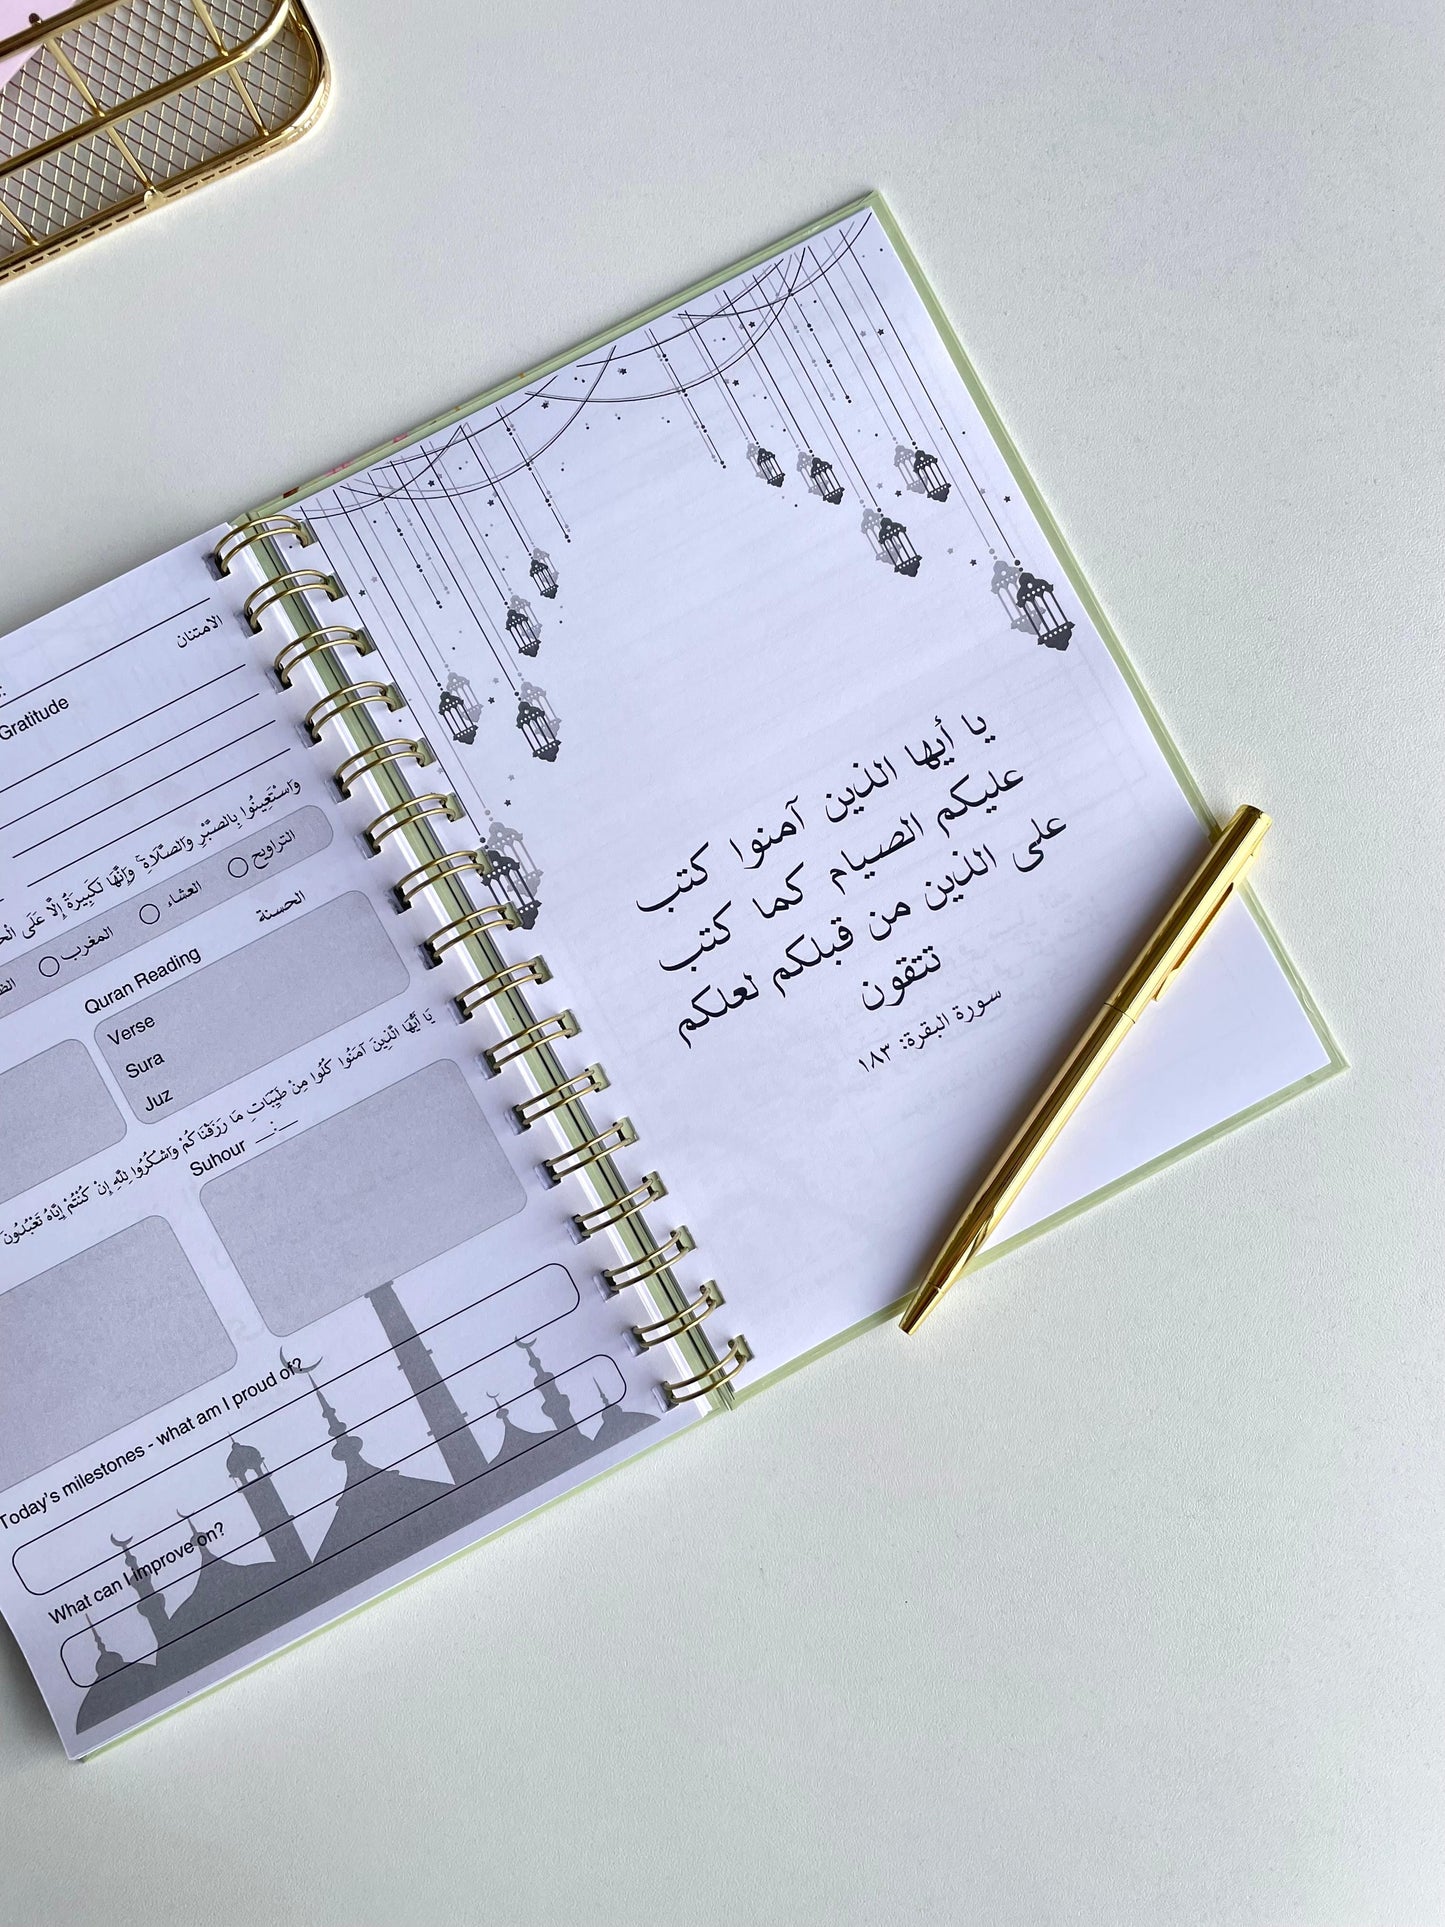 الامتنان
Gratitude
وَاسْتَعِينُوا بِالصَّبْرِ وَالصَّلَاةِ ۚ وَإِنَّهَا لَكَبِيرَةٌ إِلَّا عَلَى
التراويح
العشاء
المغرب
الحسنة
Quran Reading
Verse
Sura
Juz
يَا أَيُّهَا الَّذِينَ آمَنُوا كُلُوا مِنْ طَيِّبَاتِ مَا رَزَقْنَاكُمْ وَاشْكُرُوا لِلَّهِ إِنْ كُنْتُمْ إِيَّاهُ تَعْبُدُونَ
Suhour __:__
Today's milestones - what am I proud of?
What can I improve on?
يا أيها الذين آمنوا كتب
عليكم الصيام كما كتب
على الذين من قبلكم لعلكم
تتقون
سورة البقرة: ١٨٣